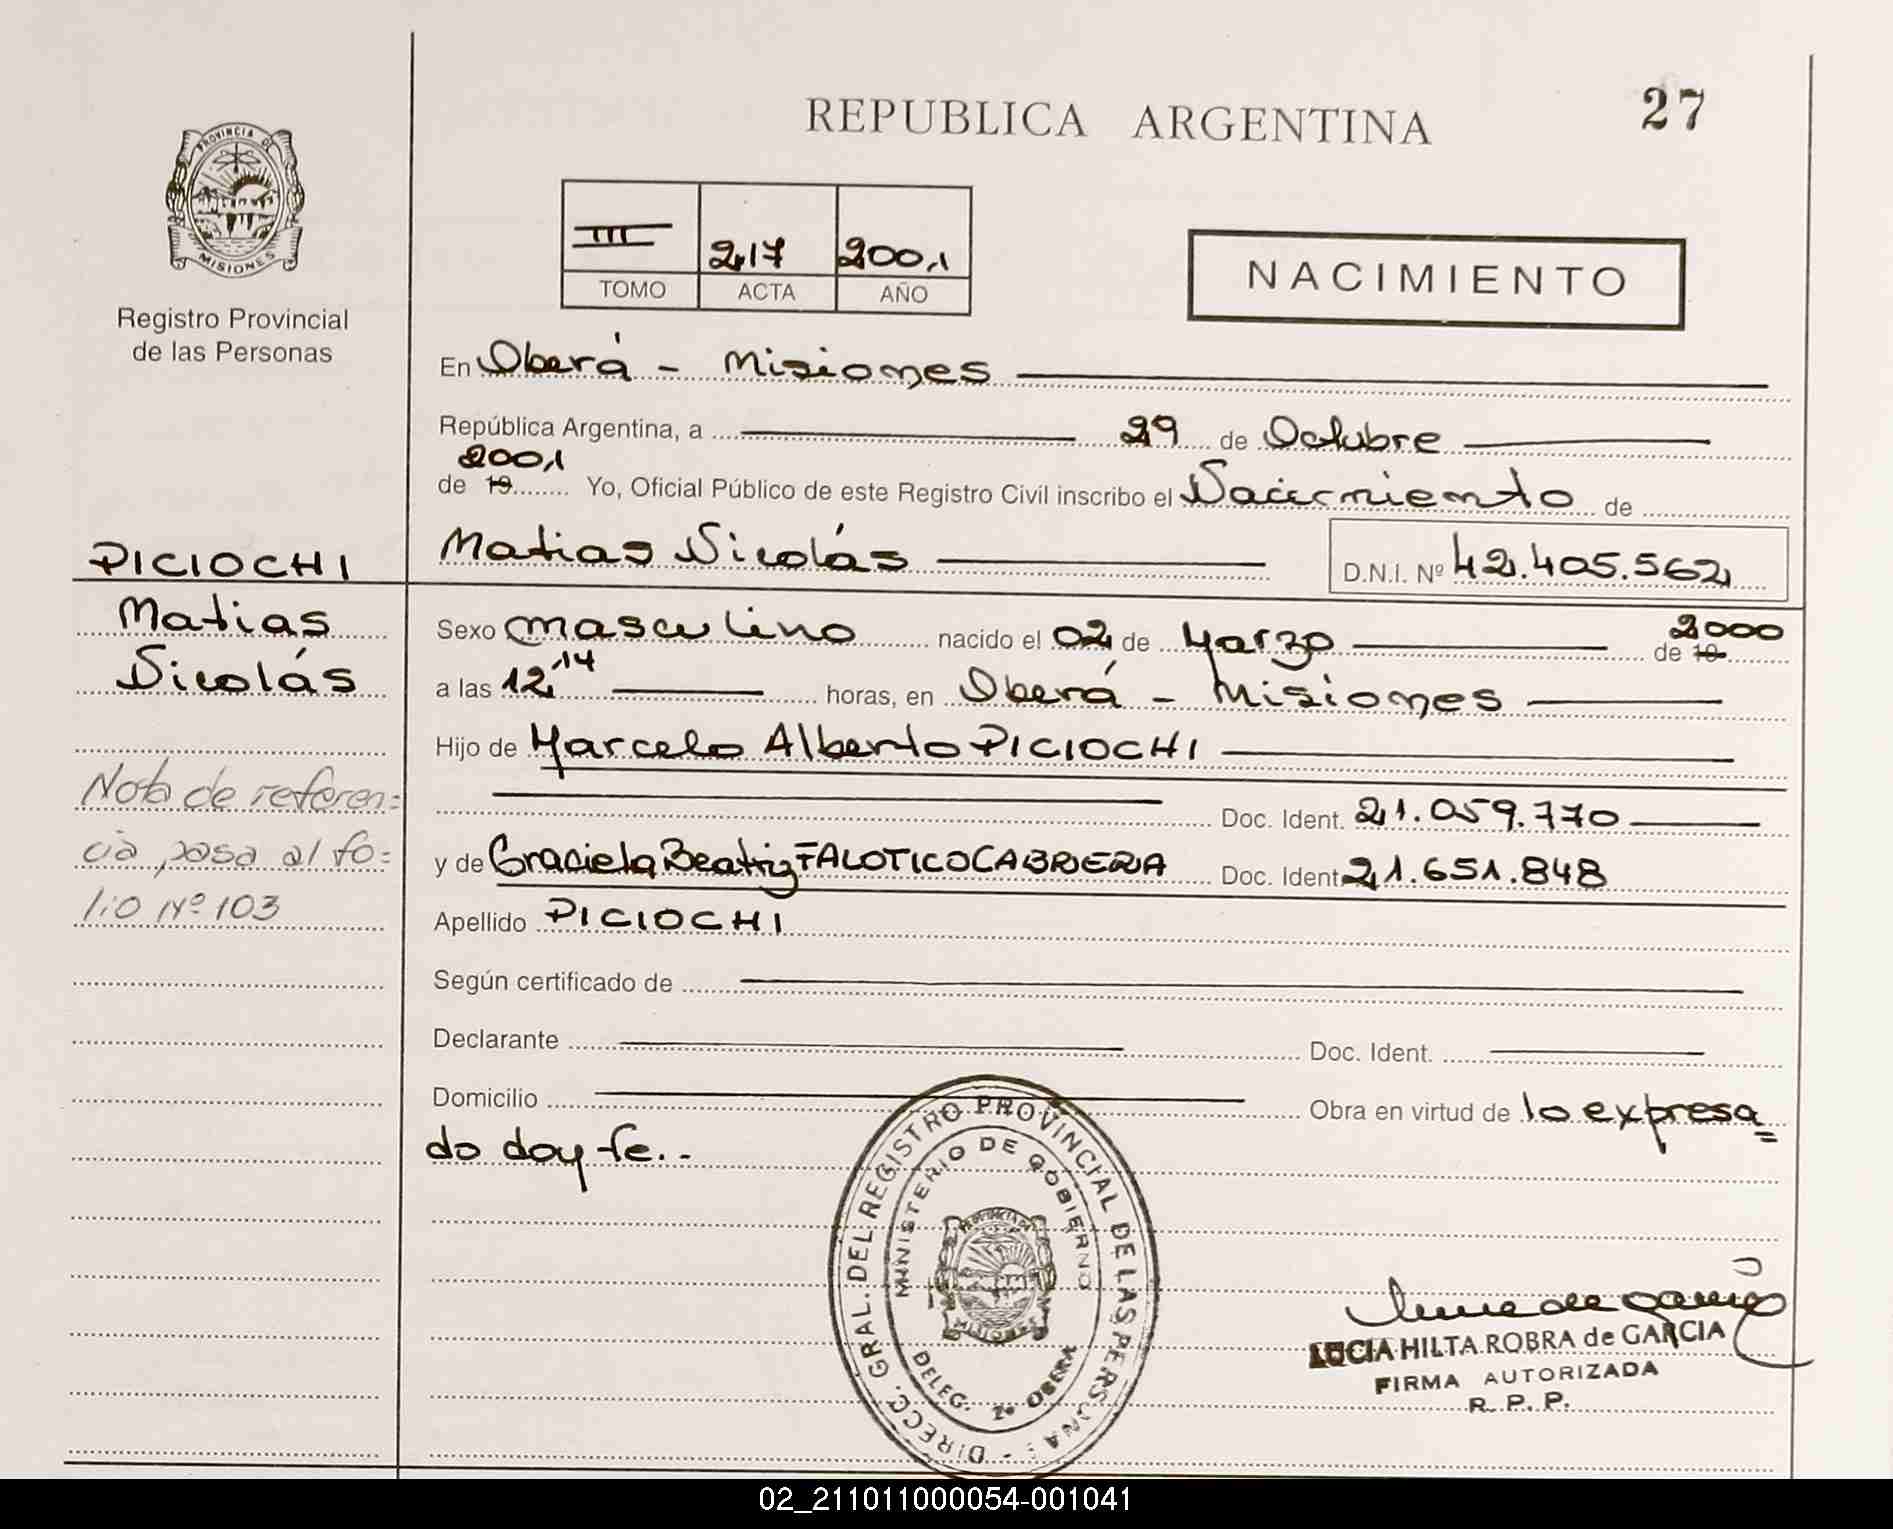 REPUBLICA ARGENTINA
27
PROVINCIA DE
MISIONES
Registro Provincial
de las Personas
III 217 2001
TOMO ACTA AÑO
NACIMIENTO
En Oberá - Misiones
República Argentina, a 29 de Octubre
2001
de 19 Yo, Oficial Público de este Registro Civil inscribo el Nacimiento de
Matias Nicolás D.N.I. Nº 42.405.562
PICIOCHI
Matias
Nicolás
Nota de referen=
cia pasa al fo=
lio Nº 103
Sexo masculino nacido el 02 de Marzo de 19 2000
a las 12,14 horas, en Oberá - Misiones
Hijo de Marcelo Alberto PICIOCHI
Doc. Ident. 21.059.770
y de Graciela Beatriz FALOTICO CABRERA Doc. Ident. 21.651.848
Apellido PICIOCHI
Según certificado de
Declarante Doc. Ident.
Domicilio Obra en virtud de lo expresa=
do doy fe..
DIRECC. GRAL. DEL REGISTRO PROVINCIAL DE LAS PERSONAS
MINISTERIO DE GOBIERNO
MISIONES
DELEG. 2º OBERA
LUCIA HILTA ROBRA de GARCIA
FIRMA AUTORIZADA
R. P. P.
02_211011000054-001041